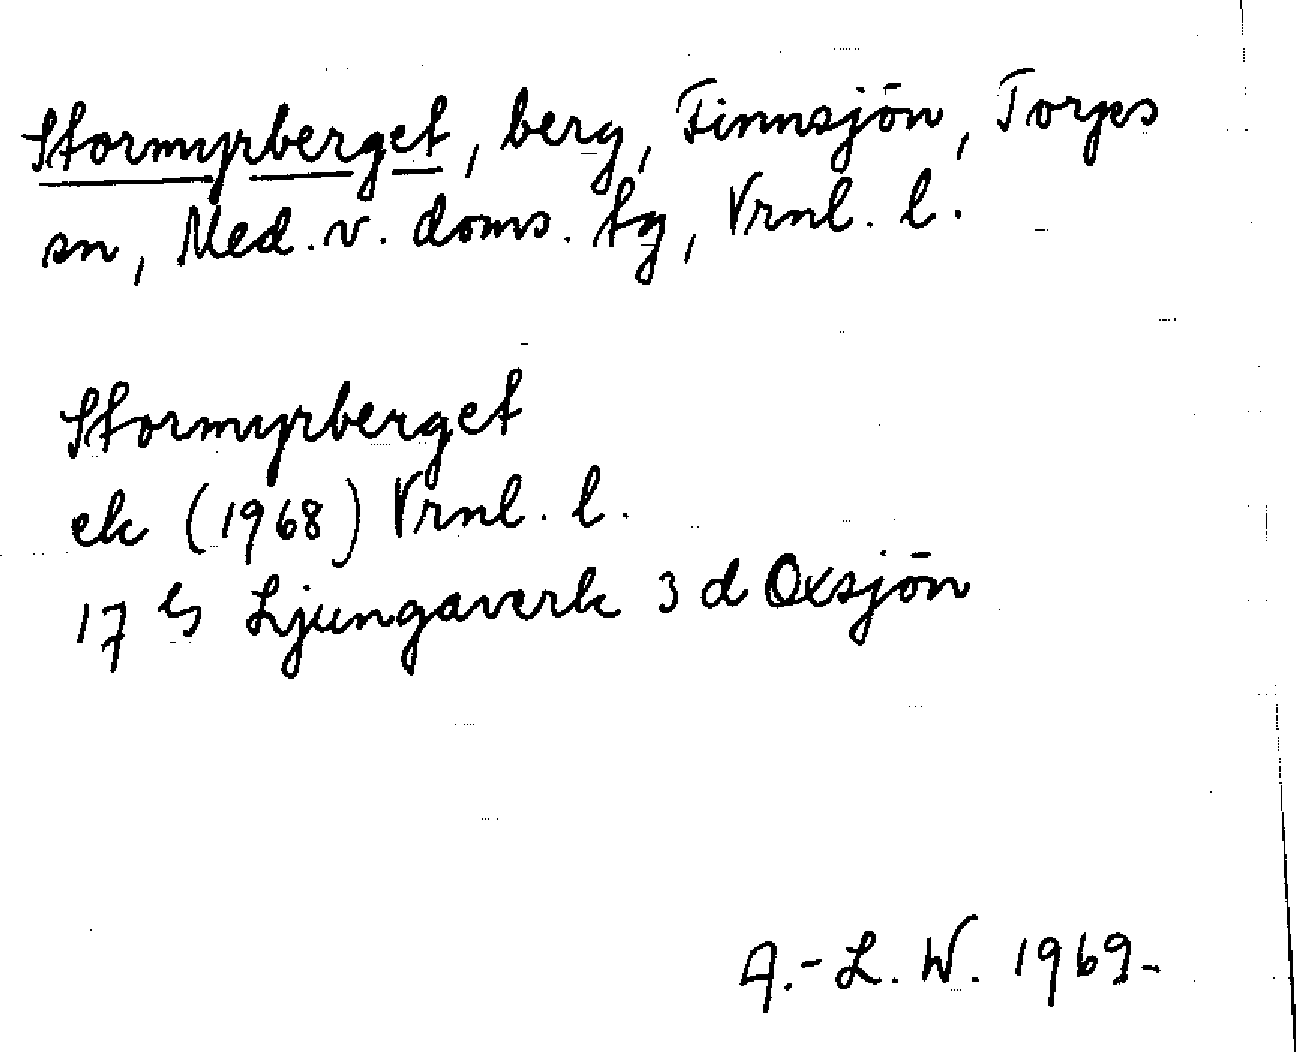 Stormyrberget, berg, Finnsjön, Torps
sn, Med. v. doms. tg, Vrnl. l.
Stormyrberget
ek (1968) Vrnl. l.
17 Ljungaverk 3 d Oxsjön
A.-L. W. 1969-